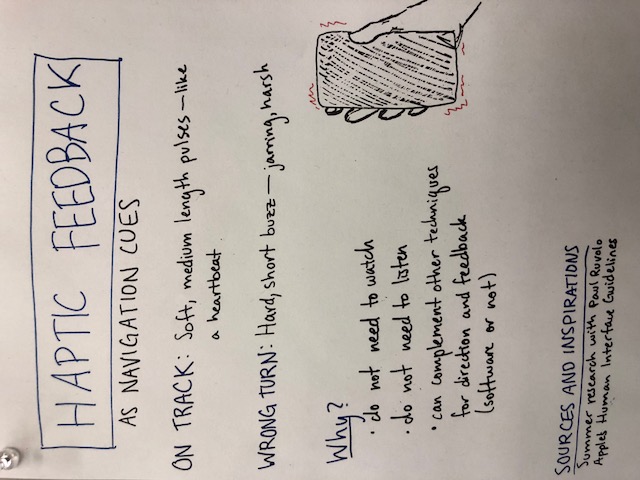 HAPTIC FEEDBACK
AS NAVIGATION CUES
ON TRACK: Soft, medium length pulses—like
a heartbeat.
WRONG TURN: Hard, short buzz — jarring, harsh
Why?
· do not need to watch
· do not need to listen
· can complement other techniques
for direction and feedback
(software or not)
SOURCES AND INSPIRATIONS
Summer research with Paul Ruvolo
Apple's Human Interface Guidelines